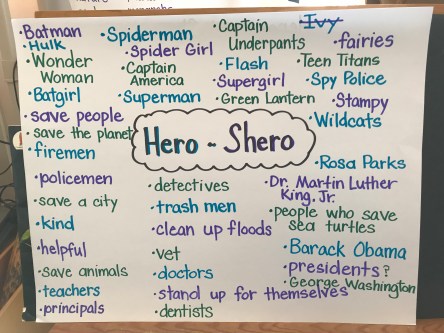 Ivy
·Batman
·Hulk
·Wonder
Woman
·Batgirl
·save people
·save the planet
·firemen
·policemen
·save a city
·kind
·helpful
·save animals
·teachers
·principals
·Spiderman
·Spider Girl
·Captain
America
·Superman
·Captain
Underpants
·Flash
·Supergirl
·Green Lantern
·fairies
·Teen Titans
·Spy Police
·Stampy
·Wildcats
Hero - Shero
·detectives
·trash men
·clean up floods
·vet
·doctors
·stand up for themselves
·dentists
·Rosa Parks
·Dr. Martin Luther
King, Jr.
·people who save
sea turtles
·Barack Obama
·presidents?
·George Washington